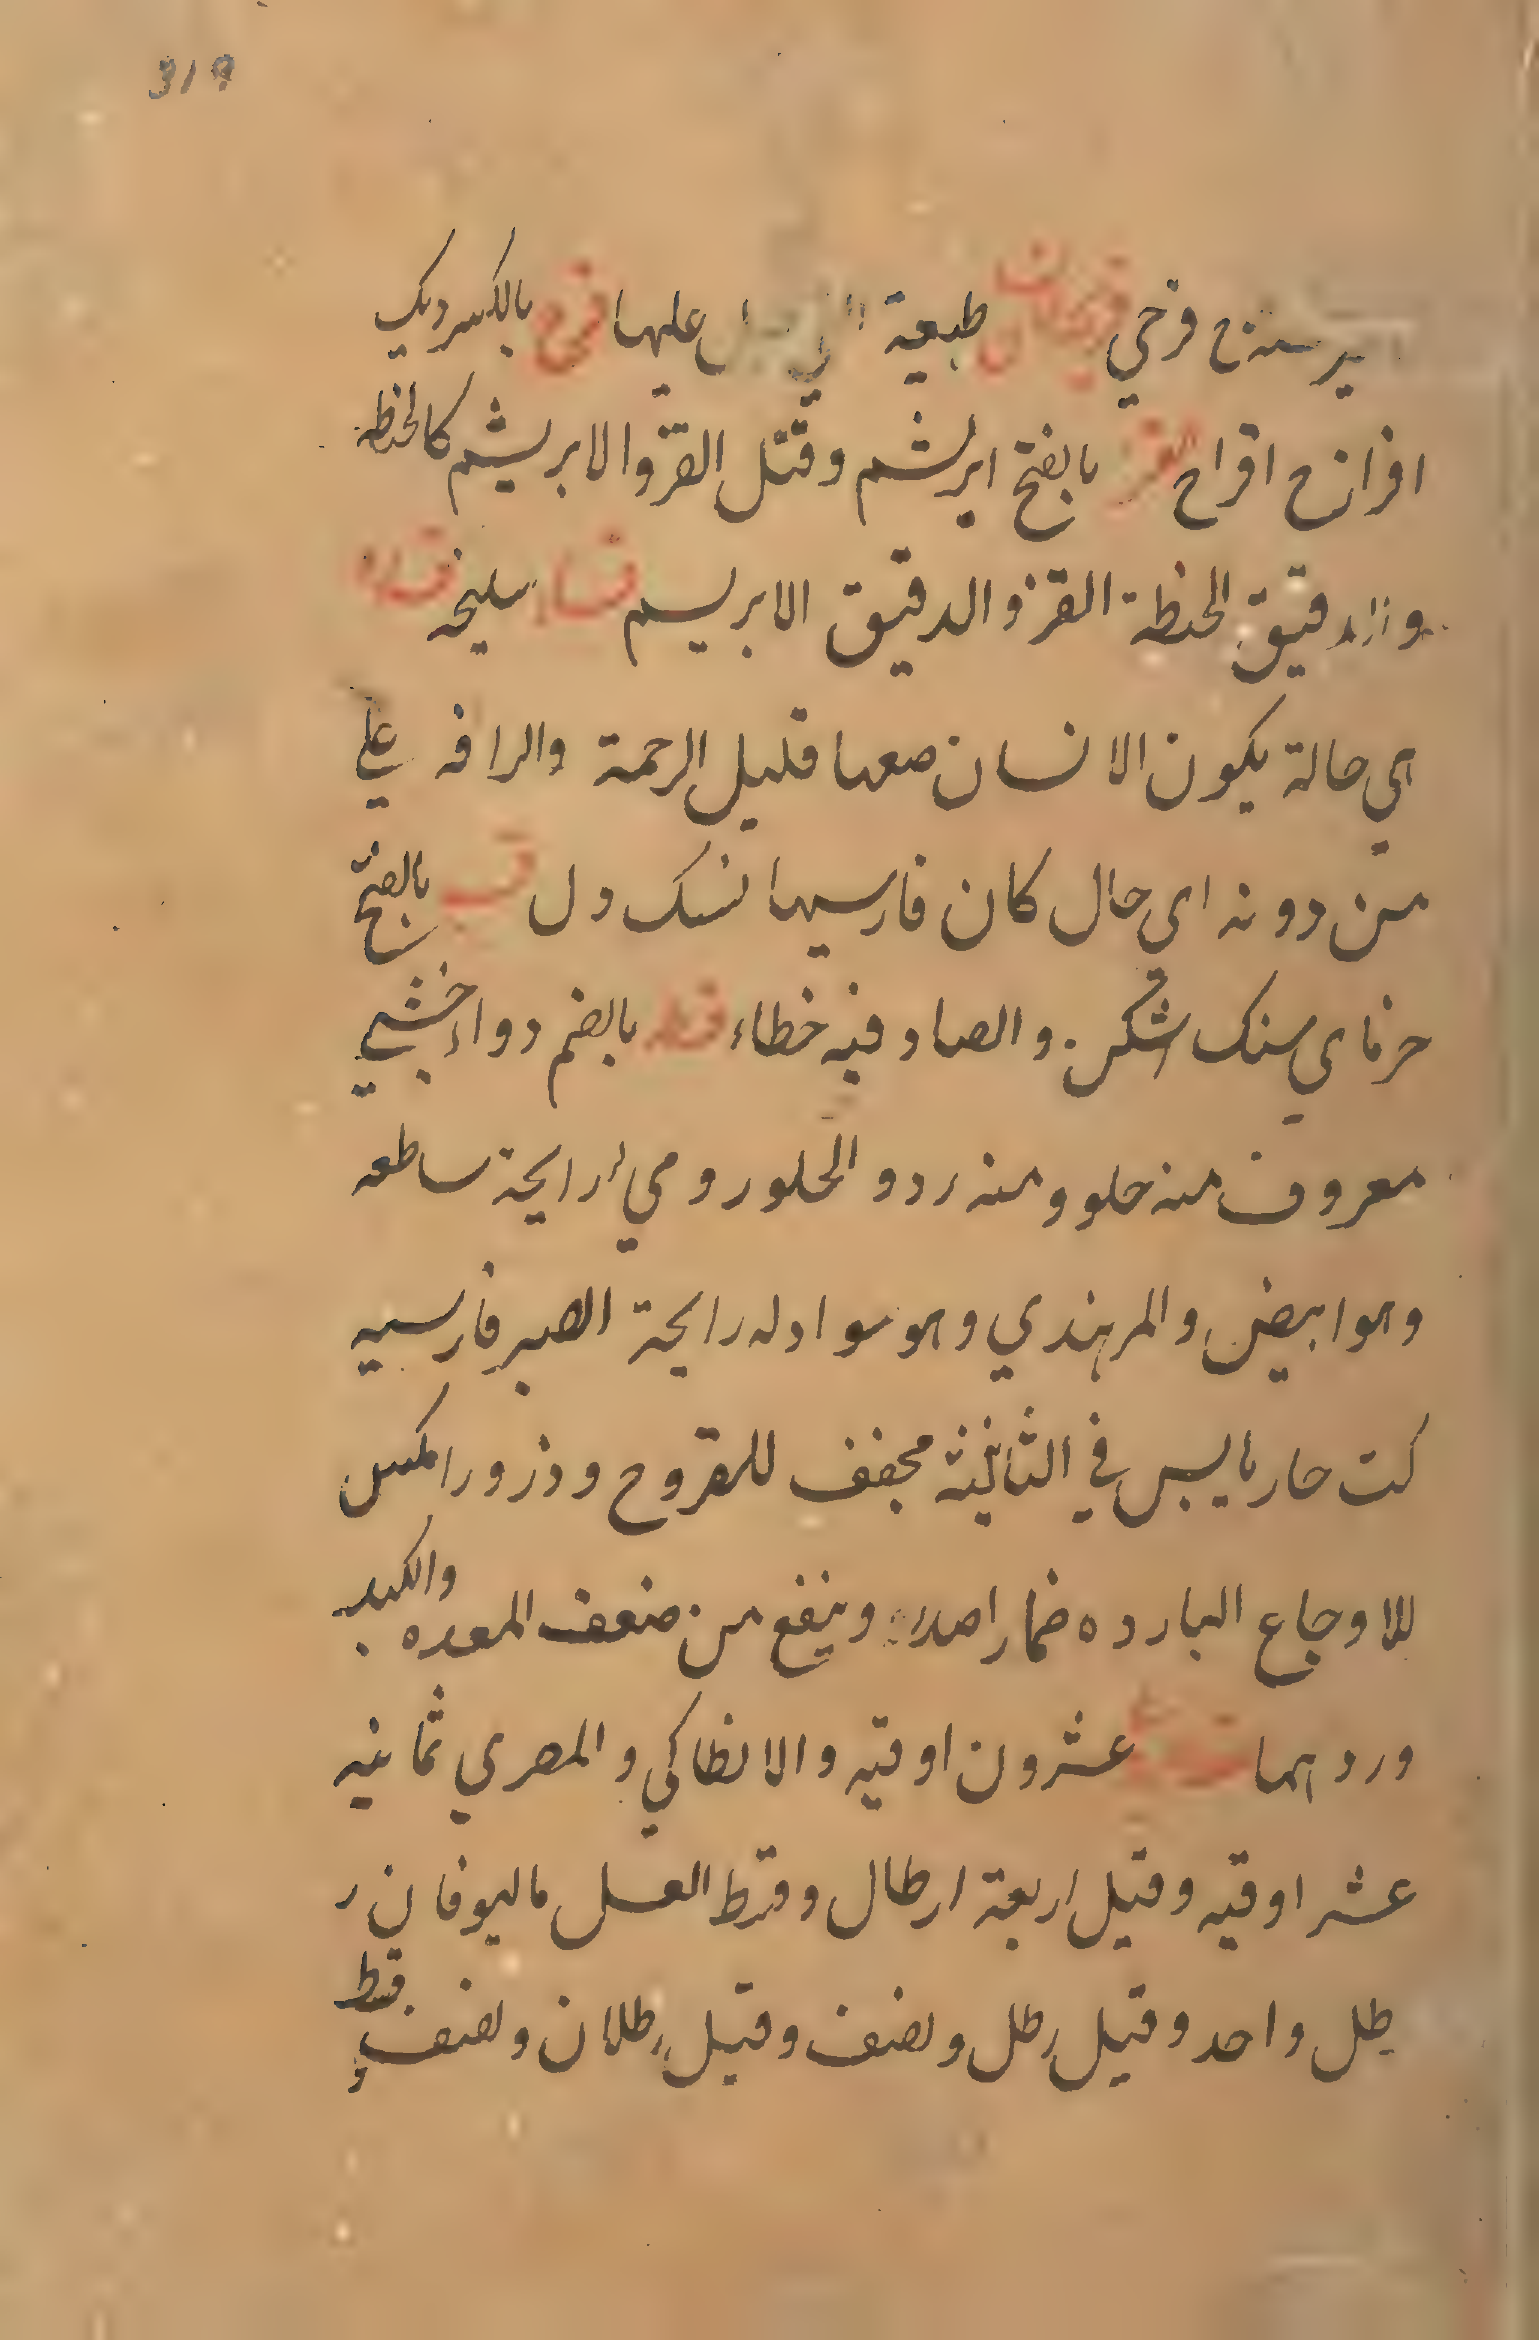 319
طبيعة عليها قزح بالكسر ديك
افرازح اقراح القز بالفتح ابريشم وقتل القز والابريشم كالحنظه
والدقيق الحنظة القز والدقيق الابريسم قساء سليخه
هي حالة يكون الانسان معها قليل الرحمة والرافه علي
من دونه اي حال كان فارسيها سنك دل قسب بالفتح
خرماي سنك شكن والصاد فيه خطاء قسط بالضم دواء خشبي
معروف منه حلو ومنه ر دو الحلو رومي رايحة ساطعه
وهو ابيض والمر هندي وهو سواد له رايحة الصبر فارسيه
كت حار يابس في الثانية مجفف للقروح وذرورا
للاوجاع البارده ضمارا وينفع من ضعف المعده والكبد
وردهما عشرون اوقيه والانطاكي والمصري ثمانيه
عشر اوقيه وقيل اربعة ارطال وقسط العسل ر
طل واحد وقيل رطل ونصف وقيل رطلان ونصف
قسط